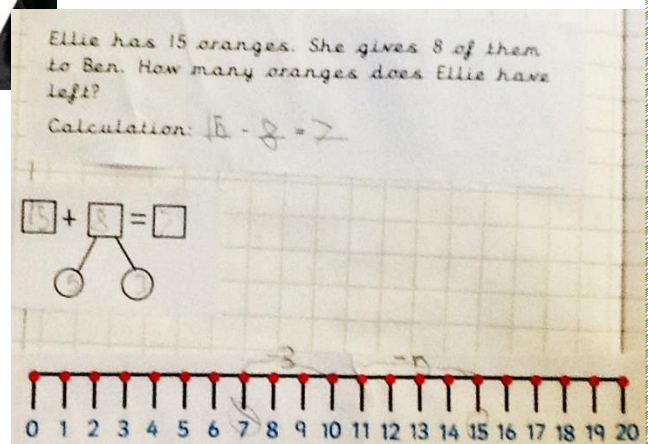 Ellie has 15 oranges. She gives 8 of them
to Ben. How many oranges does Ellie have
left?
Calculation: 15 - 8 = 7
15 + 8 = 7
5 3
-3 -5
0 1 2 3 4 5 6 7 8 9 10 11 12 13 14 15 16 17 18 19 20